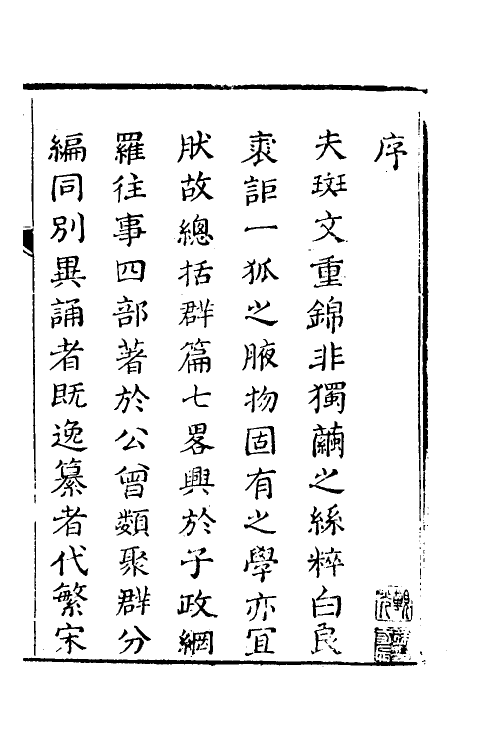 序
夫斑文重錦非獨繭之絲粹白良
裘詎一狐之腋物固有之學亦宜
肰故總括群篇七畧興於子政網
羅往事四部著於公曾類聚群分
編同別異誦者既逸纂者代繁宋